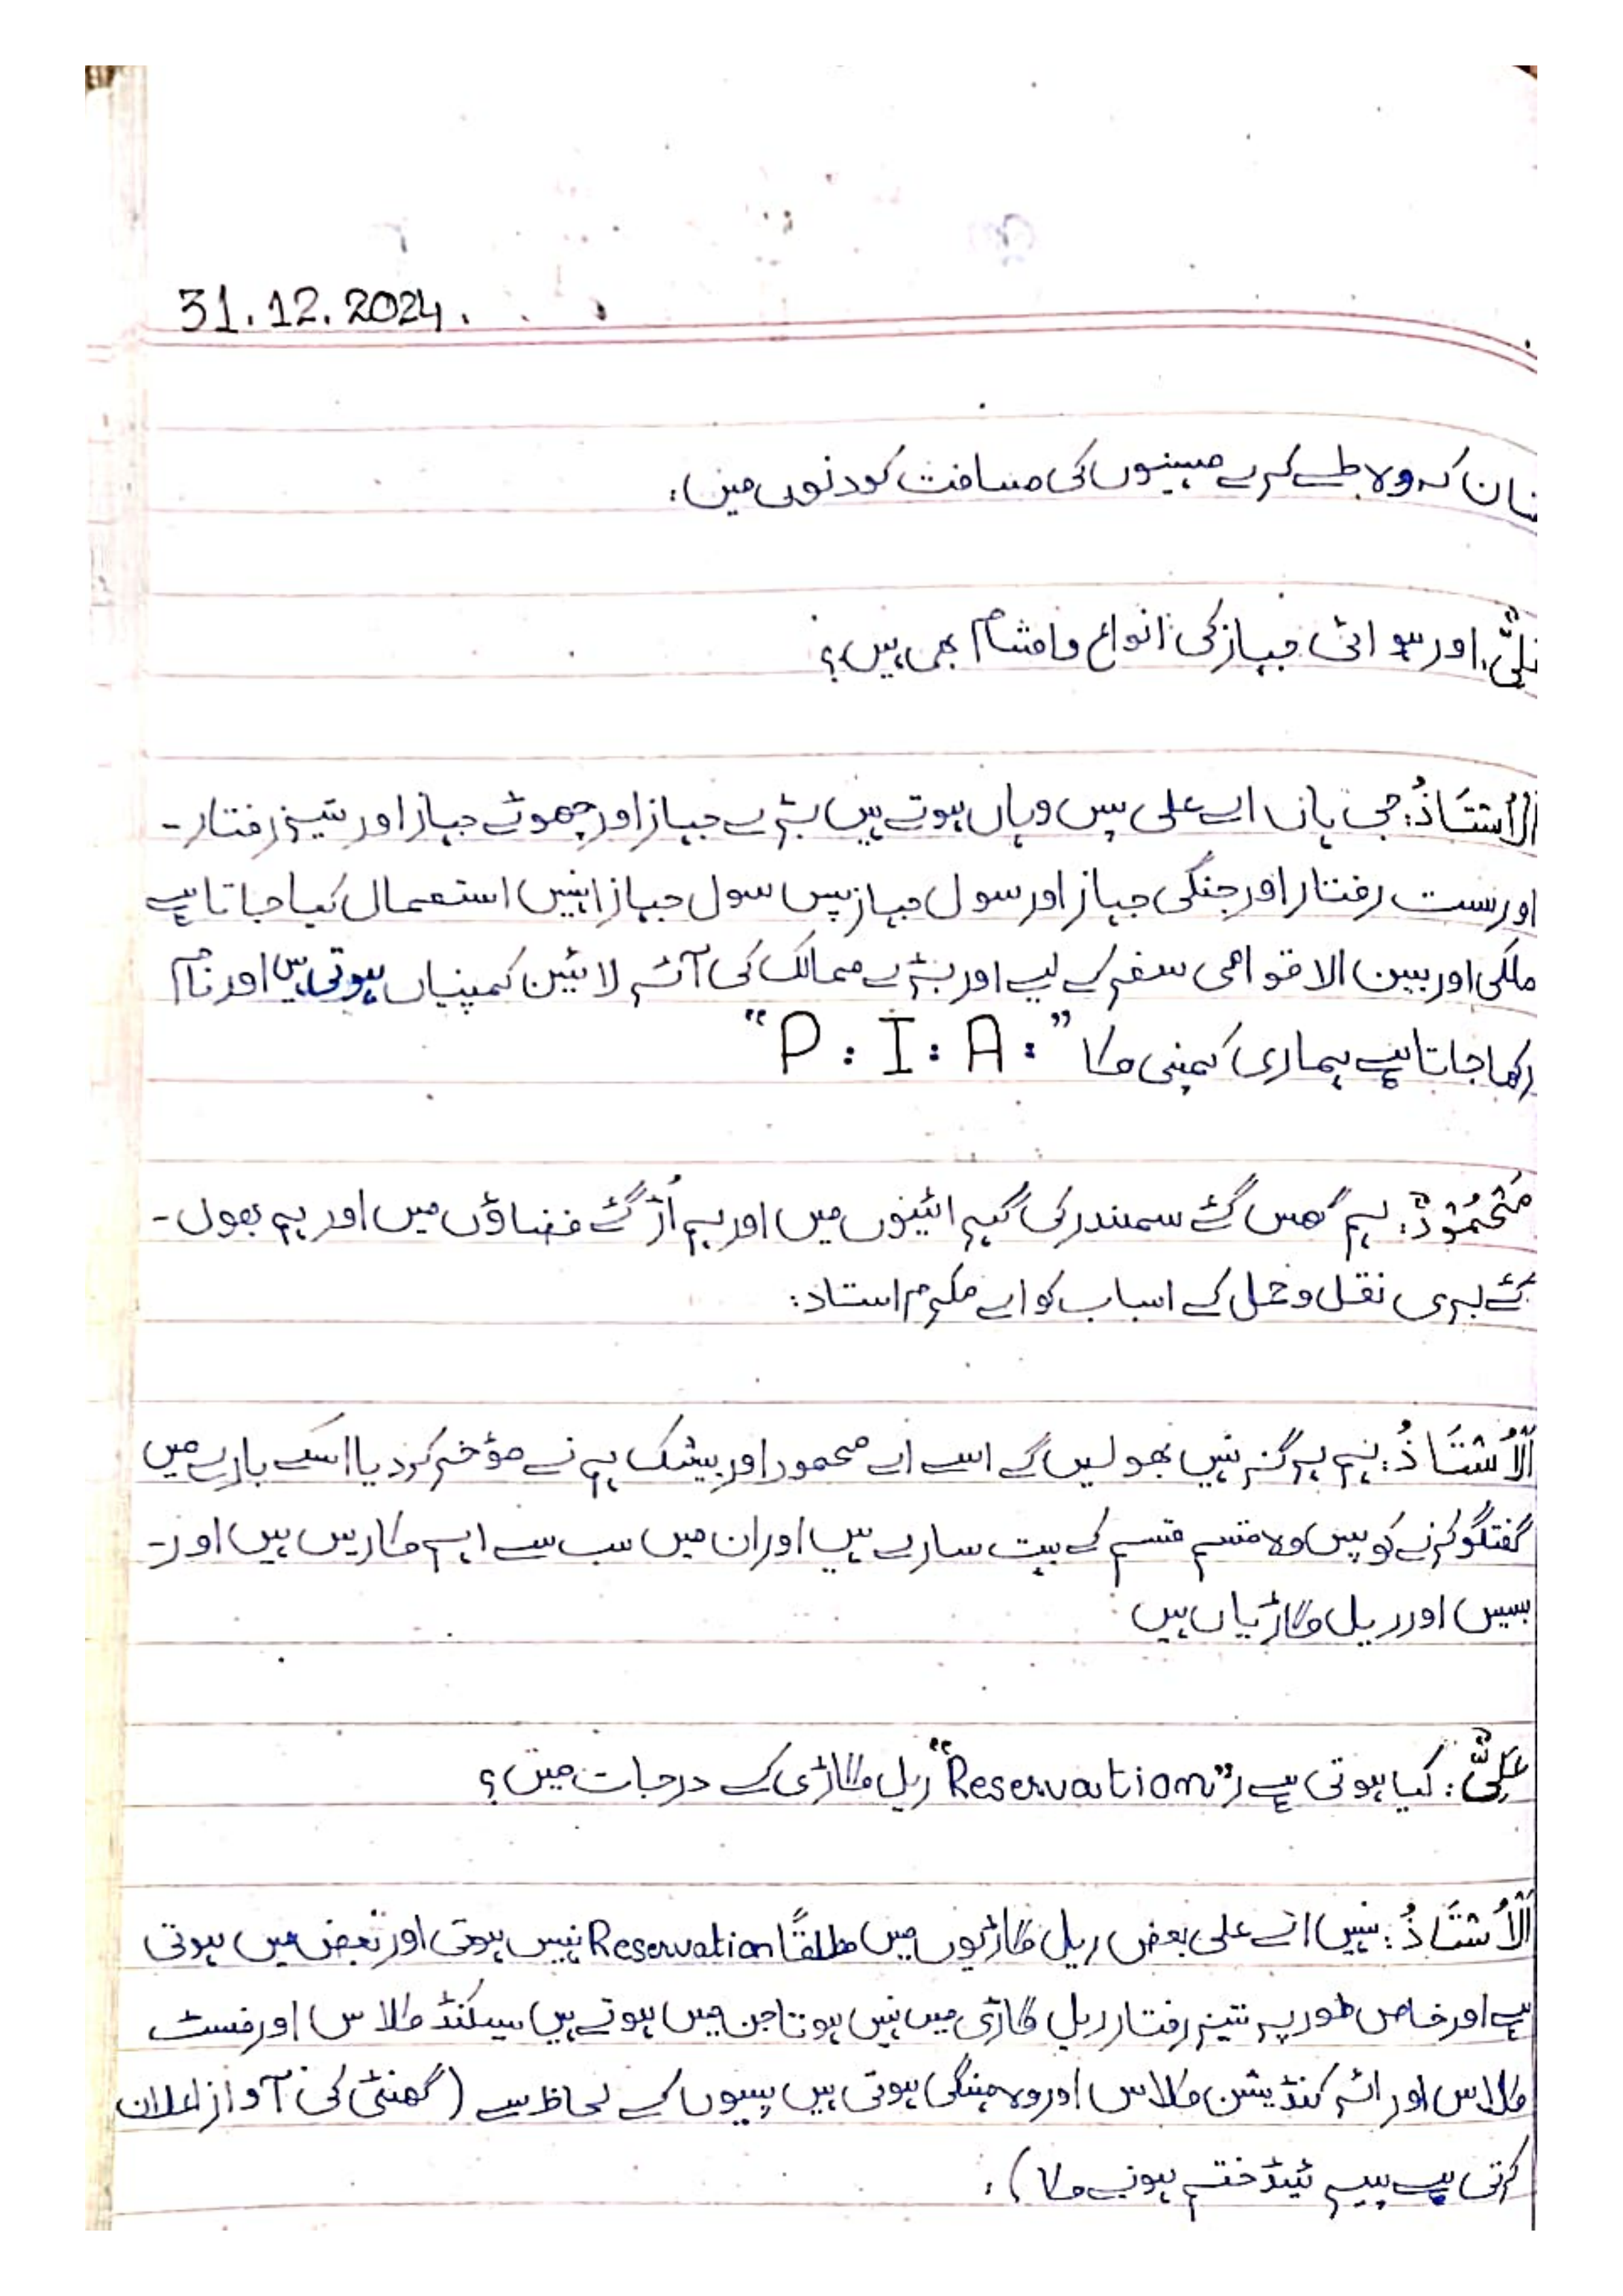 31.12.2024.
کہ وہ طے کرے مہینوں کی مسافت کو دنوں میں:
اور ہوائی جہاز کی انواع و اقسام بھی ہیں؟
اَلْأُسْتَاذُ: جی ہاں اے علی پس وہاں ہوتے ہیں بڑے جہاز اور چھوٹے جہاز اور تیز رفتار۔
اور سست رفتار اور جنگی جہاز اور سول جہاز پس سول جہاز انہیں استعمال کیا جاتا ہے
ملکی اور بین الاقوامی سفر کے لیے اور بڑے ممالک کی آئر لائین کمپنیاں ہوتی ہیں اور نام
رکھا جاتا ہے ہماری کمپنی کا "P : I : A :"
مَحْمُوْدٌ: ہم گھس گئے سمندر کی گہرائیوں میں اور ہم اُڑ گئے فضاؤں میں اور ہم بھول۔
گئے بری نقل و حمل کے اسباب کو اے مکرم استاد:
اَلْأُسْتَاذُ: ہم ہرگز نہیں بھولیں گے اسے اے محمود اور بیشک ہم نے مؤخر کر دیا اسکے بارے میں
گفتگو کرنے کو پس وہ قسم قسم کے بہت سارے ہیں اور ان میں سب سے اہم کاریں ہیں اور۔
بسیں اور ریل گاڑیاں ہیں
عَلِیٌّ: کیا ہوتی ہے "Reservation" ریل گاڑی کے درجات میں؟
اَلْأُسْتَاذُ: نہیں اے علی بعض ریل گاڑیوں میں مطلقًا Reservation نہیں ہوتی اور بعض میں ہوتی
ہے اور خاص طور پہ تیز رفتار ریل گاڑی میں نہیں ہوتا جن میں ہوتے ہیں سیکنڈ کلاس اور فسٹ
کلاس اور ائر کنڈیشن کلاس اور وہ مہنگی ہوتی ہیں پیسوں کے لحاظ سے (گھنٹی کی آواز اعلان
کرتی ہے پیریڈ ختم ہونے کا):